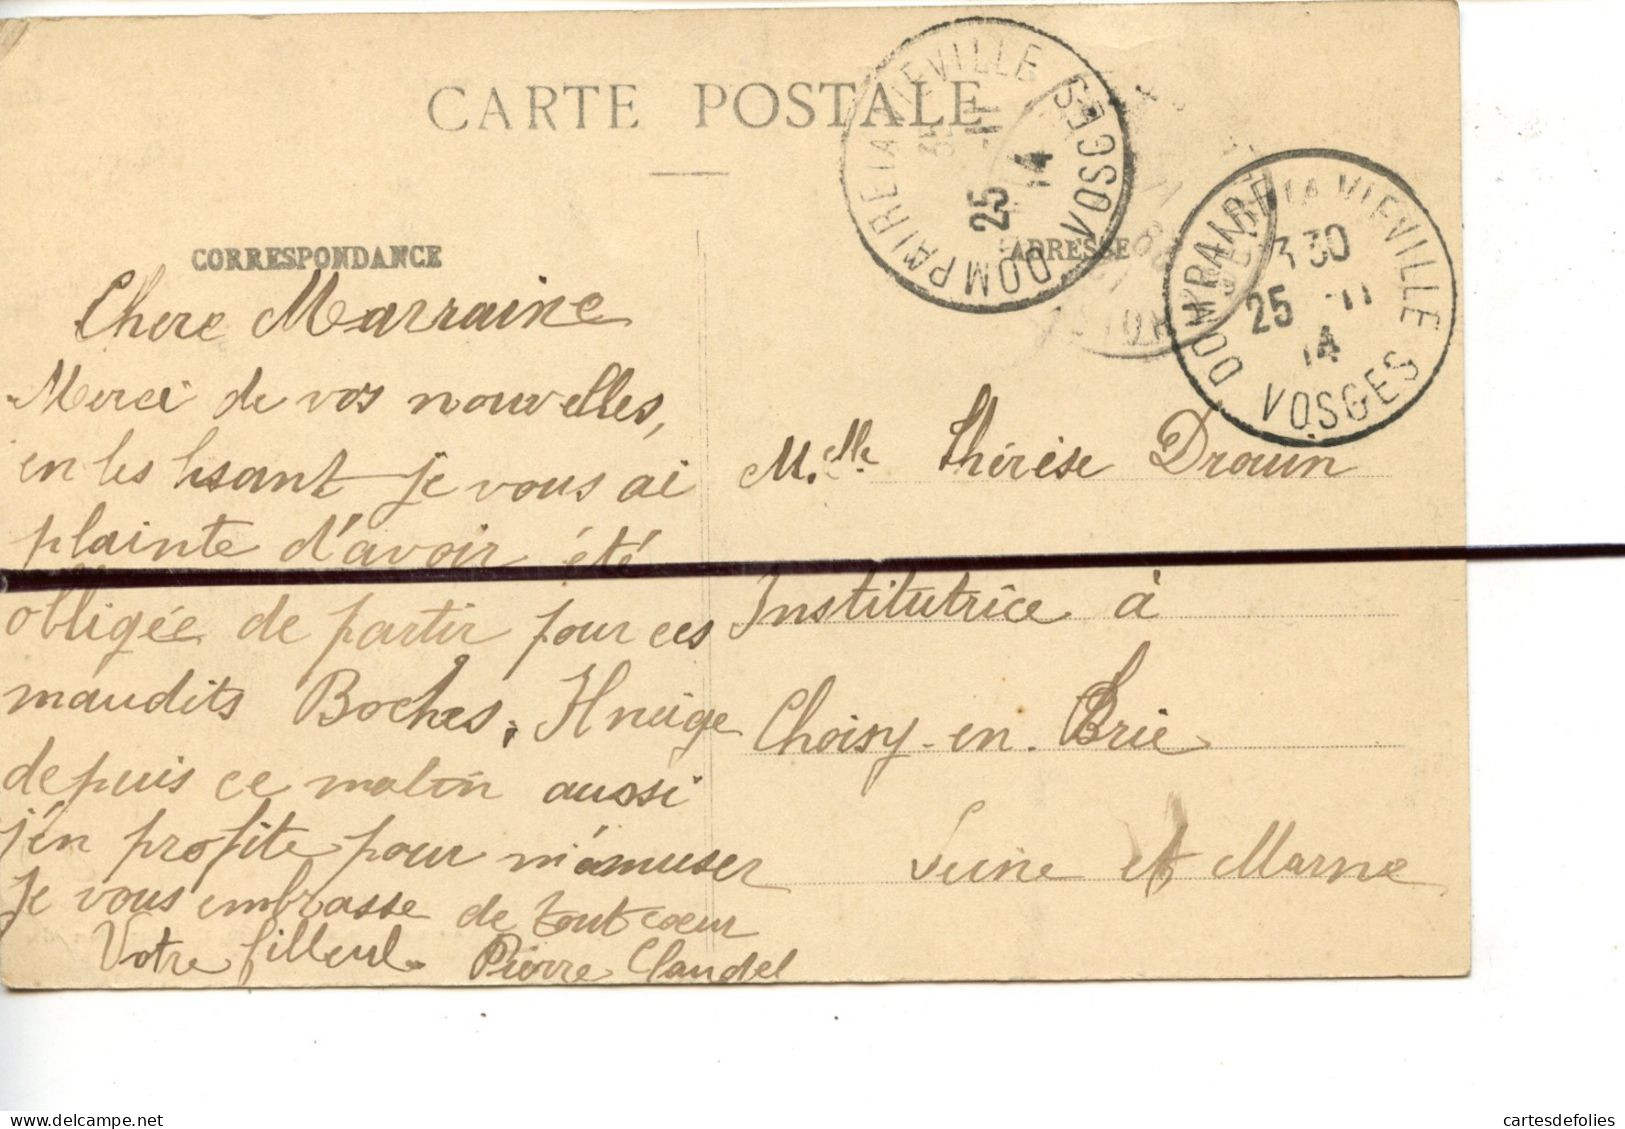 CARTE POSTALE
CORRESPONDANCE
ADRESSE
DOMPAIRE LAVIEVILLE
25 -11
14
VOSGES
DOMPAIRE LAVIEVILLE
3 30
25 -11
14
VOSGES
Chere Marraine
Merci de vos nouvelles,
en les lisant je vous ai
plainte d'avoir été
obligée de partir pour ces
maudits Boches, Il neige
depuis ce matin aussi
j'en profite pour m'amuser
Je vous embrasse de tout coeur
Votre filleul. Pierre Claudel
M.elle Thérèse Drouin
Institutrice à
Choisy-en-Brie
Seine et Marne
cartesdefolies
delcampe.net